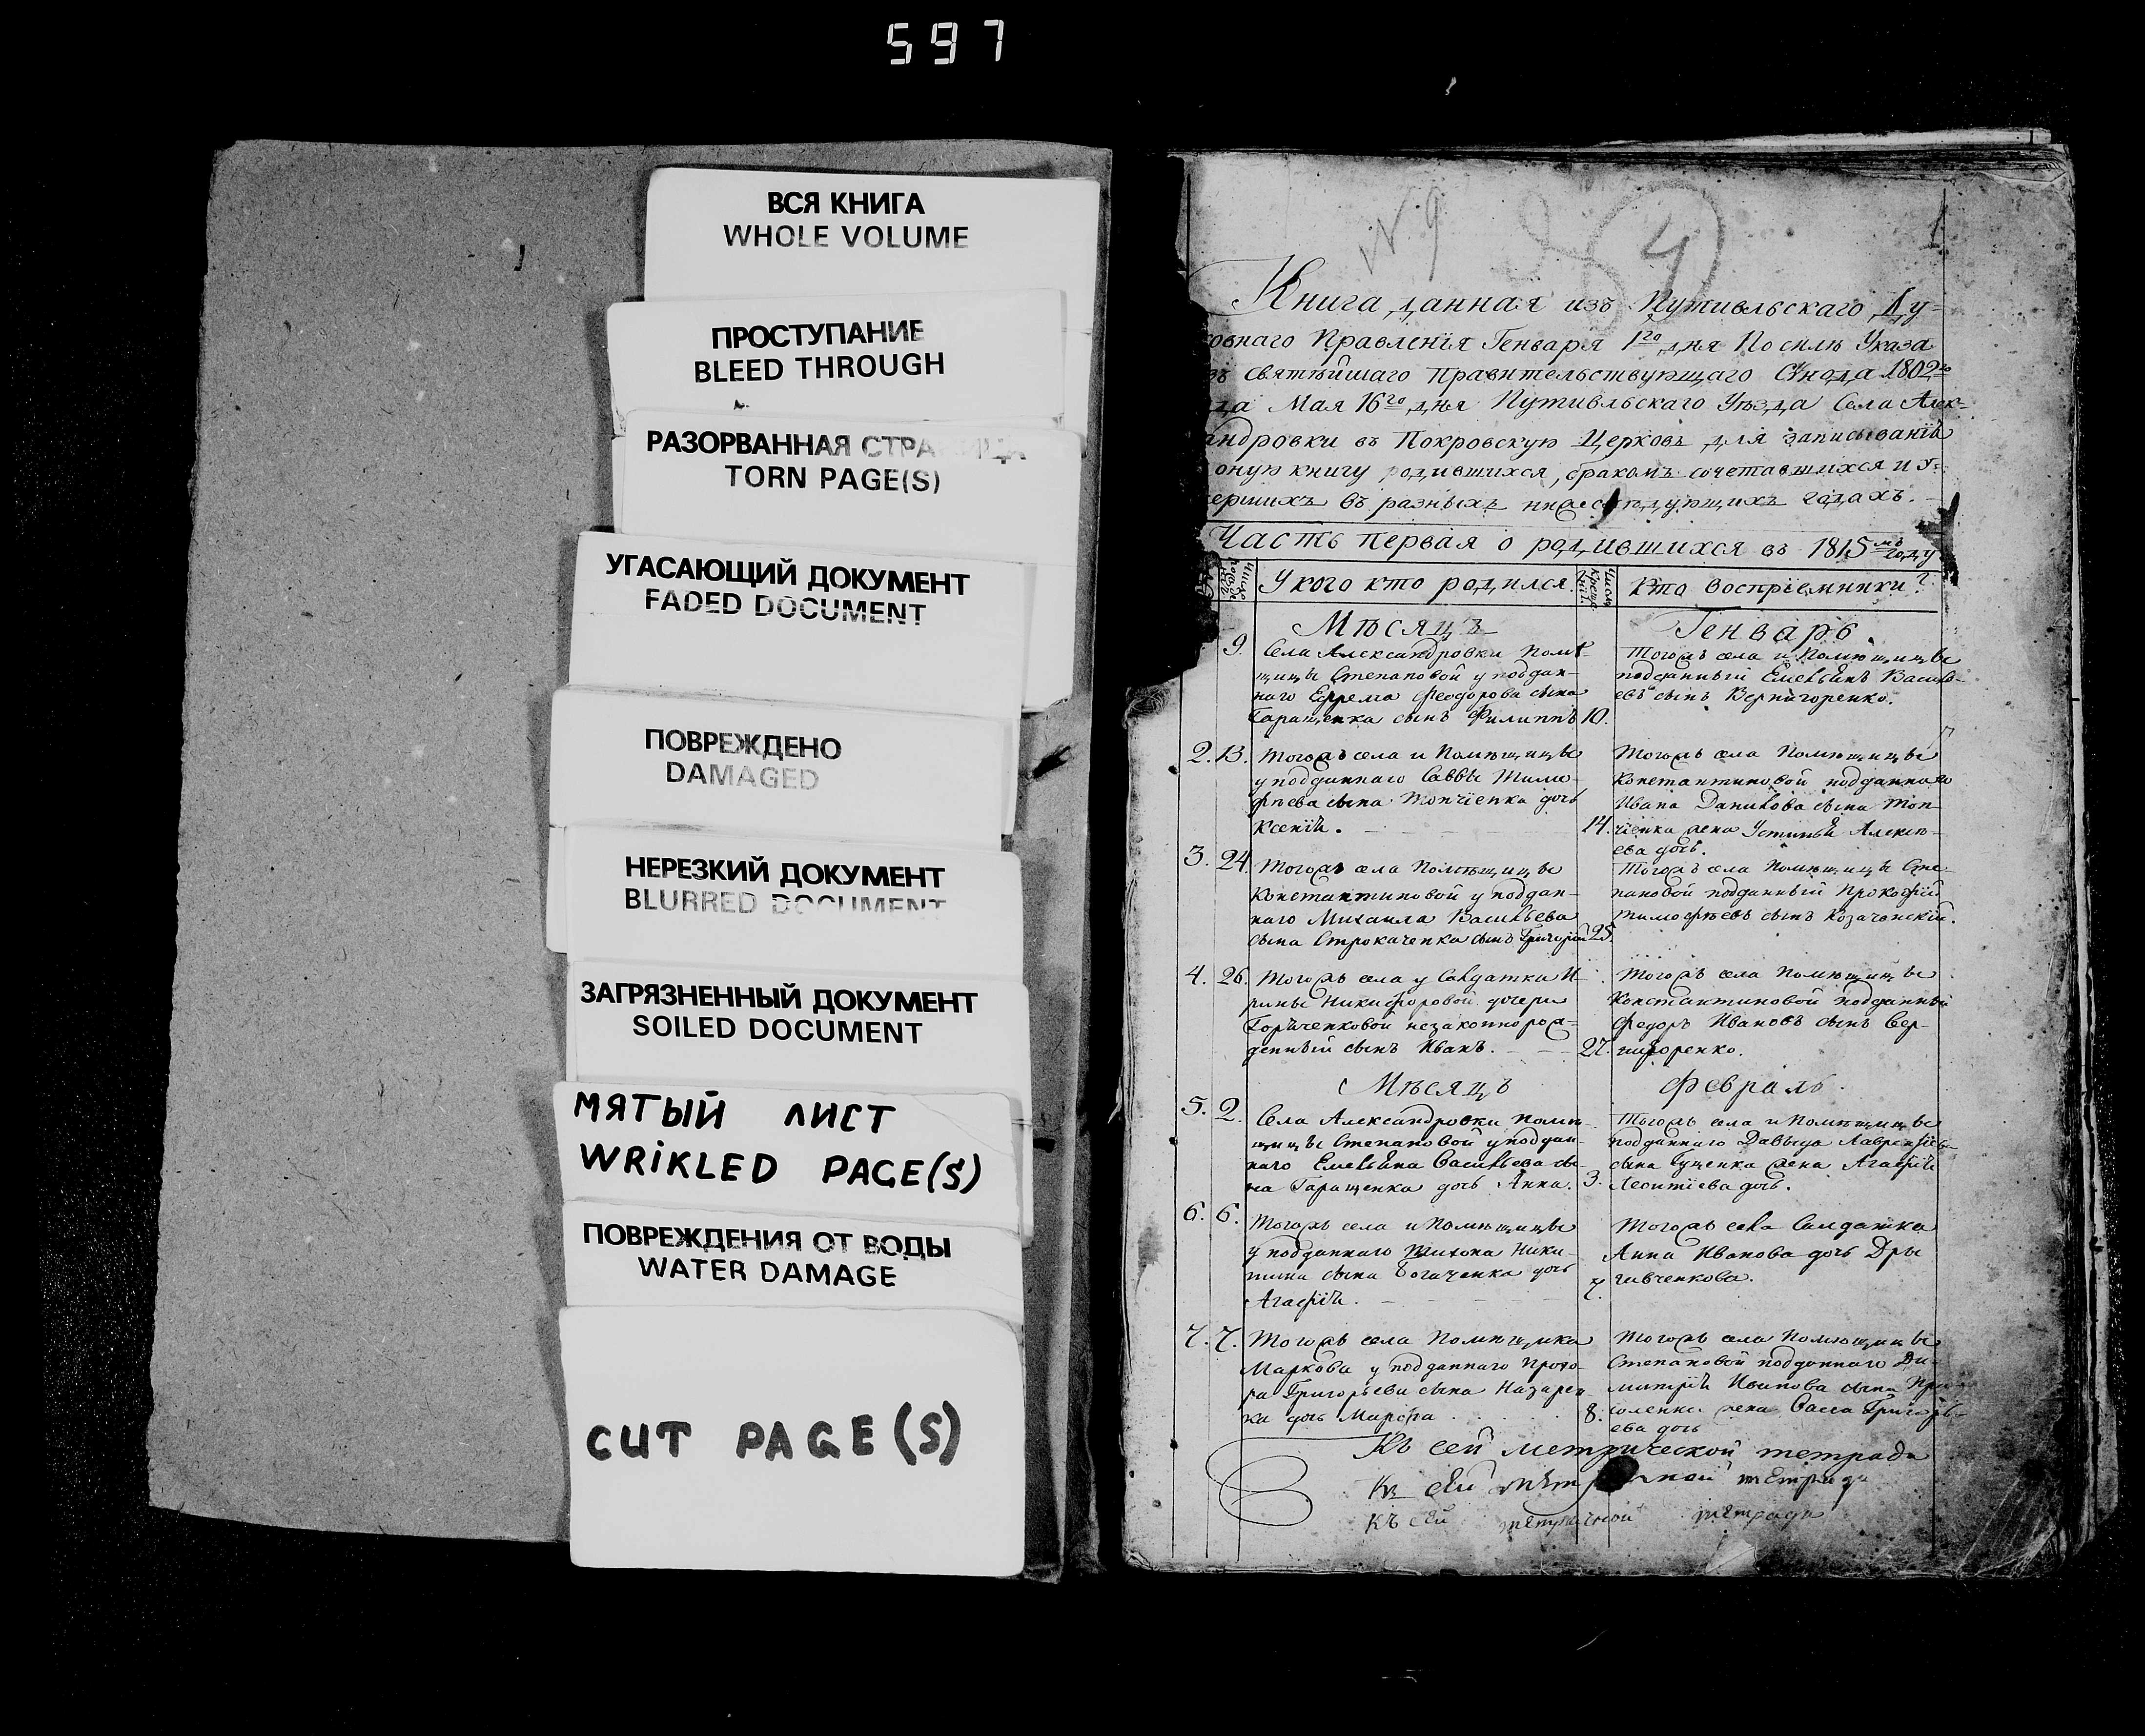 597
ВСЯ КНИГА
WHOLE VOLUME
ПРОСТУПАНИЕ
BLEED THROUGH
РАЗОРВАННАЯ СТРА
TORN PAGE(S)
УГАСАЮЩИЙ ДОКУМЕНТ
FADED DOCUMENT
ПОВРЕЖДЕНО
DAMAGED
НЕРЕЗКИЙ ДОКУМЕНТ
BLURRED DOCUMENT
ЗАГРЯЗНЕННЫЙ ДОКУМЕНТ
SOILED DOCUMENT
МЯТЫЙ ЛИСТ
WRiKLED PAGE(S)
ПОВРЕЖДЕНИЯ ОТ ВОДЫ
WATER DAMAGE
CUT PAGE(S)
N 9
4
1
Книга данная изъ Путивльскаго Ду-
овнаго Правленія Генваря 1го дня По силѣ Указа
святѣйшаго Правительствующаго Сѵнода 1802го
да Мая 16го дня Путивльскаго Уѣзда Села Алек-
андровки въ Покровскую Церковь для записыванія
оную книгу родившихся, бракомъ сочетавшихся и у-
ершихъ въ разныхъ годахъ.
Часть первая о родившихся въ 1815мъ году
У кого кто родился.
Кто воспріемники?
Мѣсяцъ
Генварь.
9.
Села Александровки помѣ-
щицы Степановой у поддан-
наго Ефрема Феодорова сына
Гаращенка сынъ Филиппъ
10.
Тогожъ села и Помѣщицы
подданный Емельянъ Василь-
евъ сынъ Вернигоренко.
2. 13.
Тогожъ села и Помѣщицы
у подданнаго Саввы Тимо-
фѣева сына Топчіенка дочь
Ксенія.
14.
Тогожъ села Помѣщицы
Константиновой подданнаго
Ивана Данилова сына Топ-
чіенка жена Устинья Алексѣ-
ева дочь.
3. 24
Тогожъ села Помѣщицы
Константиновой у поддан-
наго Михаила Васильева
сына Строкаченка сынъ Григорій
25.
Тогожъ села Помѣщицы Сте-
пановой подданный Прокофій
Тимофѣевъ сынъ Козачанскій.
4. 26.
Тогожъ села у Салдатки И-
рины Никифоровой дочери
незаконнорож-
денный сынъ Иванъ.
27.
Тогожъ села Помѣщицы
Константиновой подданный
Федоръ Ивановъ сынъ Вер-
нигоренко.
Мѣсяцъ
Февраль.
5. 2.
Села Александровки Помѣ-
щицы Степановой у поддан-
наго Емельяна Васильева сы-
на Гаращенка дочь Анна.
3.
Тогожъ села и Помѣщицы
подданнаго Давыда Лаврентіева
сына Гуценка жена Агафія
Леонтіева дочь.
6. 6.
Тогожъ села и Помѣщицы
у подданнаго Тихона Ники-
тина сына Богаченка дочь
Агафія.
7.
Тогожъ села Салдатка
Анна Иванова дочь Дры
гавченкова.
7. 7.
Тогожъ села Помѣщика
Маркова у подданнаго Прохо-
ра Григорьева сына Назарен-
ка дочь Марфа
8.
Тогожъ села Помѣщицы
Степановой подданнаго Ди-
митрія Иванова сына
жена Васса Григорь-
ева дочь
Къ сей метрической тетради
Къ сей тетради
Къ сей тетради